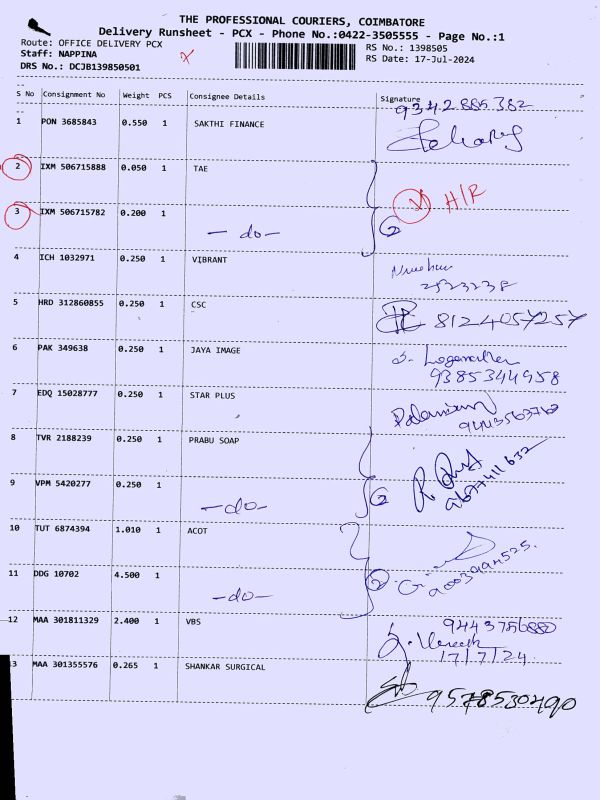 THE PROFESSIONAL COURIERS, COIMBATORE
Delivery Runsheet - PCX - Phone No.:0422-3505555 - Page No.:1
Route: OFFICE DELIVERY PCX
RS No.: 1398505
Staff: NAPPINA
RS Date: 17-Jul-2024
DRS No.: DCJB139850501
S No Consignment No Weight PCS Consignee Details Signature
9342885382
1 PON 3685843 0.550 1 SAKTHI FINANCE
2 IXM 506715888 0.050 1 TAE
H/R
3 IXM 506715782 0.200 1
- do - 2
4 ICH 1032971 0.250 1 VIBRANT
2523238
5 HRD 312860855 0.250 1 CSC
8124057257
6 PAK 349638 0.250 1 JAYA IMAGE
9385344958
7 EDQ 15028777 0.250 1 STAR PLUS
8 TVR 2188239 0.250 1 PRABU SOAP
9 VPM 5420277 0.250 1
- do - 2
10 TUT 6874394 1.010 1 ACOT
11 DDG 10702 4.500 1
- do - 2
12 MAA 301811329 2.400 1 VBS
17/7/24
3 MAA 301355576 0.265 1 SHANKAR SURGICAL
9578530490